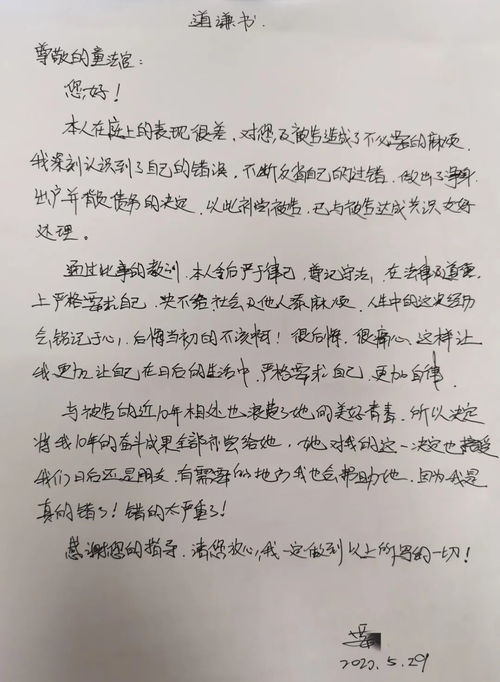 道谦书.
尊敬的童法官：
您好！
本人在庭上的表现很差，对您及被告造成了不必要的麻烦，
我深刻认识到了自己的错误，不断反省自己的过错，做出了净身
出户并背负债务的决定，以此补偿被告，已与被告达成共识友好
处理。
通过此事的教训，本人今后严于律己，遵纪守法，在法律及道德
上严格要求自己，决不给社会及他人添麻烦，人生中的这次经历
会铭记于心，后悔当初的不该啊！很后悔，很痛心，这样让
我更加让自己在日后的生活中，严格要求自己，更加自律，
与被告的近10年相处也浪费了她的美好青春，所以决定
将我10年的奋斗成果全部补偿给她，她对我的这一决定也接受
我们日后还是朋友，有需要的地方我也会帮助她，因为我是
真的错了！错的太严重了！
感谢您的指导，请您放心，我一定做到以上所写的一切！
2020.5.29